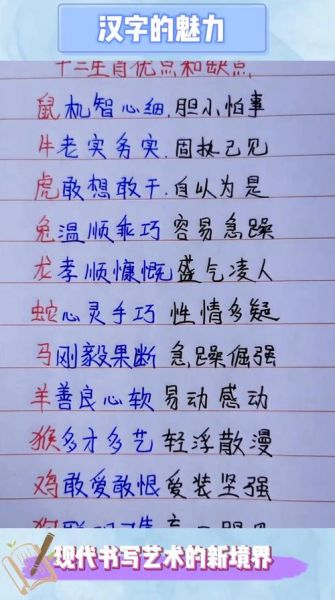 汉字的魅力
十二生肖优点和缺点
鼠机智心细,胆小怕事
牛老实务实,固执己见
虎敢想敢干,自以为是
兔温顺乖巧 容易急躁
龙孝顺慷慨 盛气凌人
蛇心灵手巧 性情多疑
马刚毅果断 急躁倔强
羊善良心软 易动感动
猴多才多艺 轻浮散漫
鸡敢爱敢恨 爱装坚强
现代书写艺术的新境界